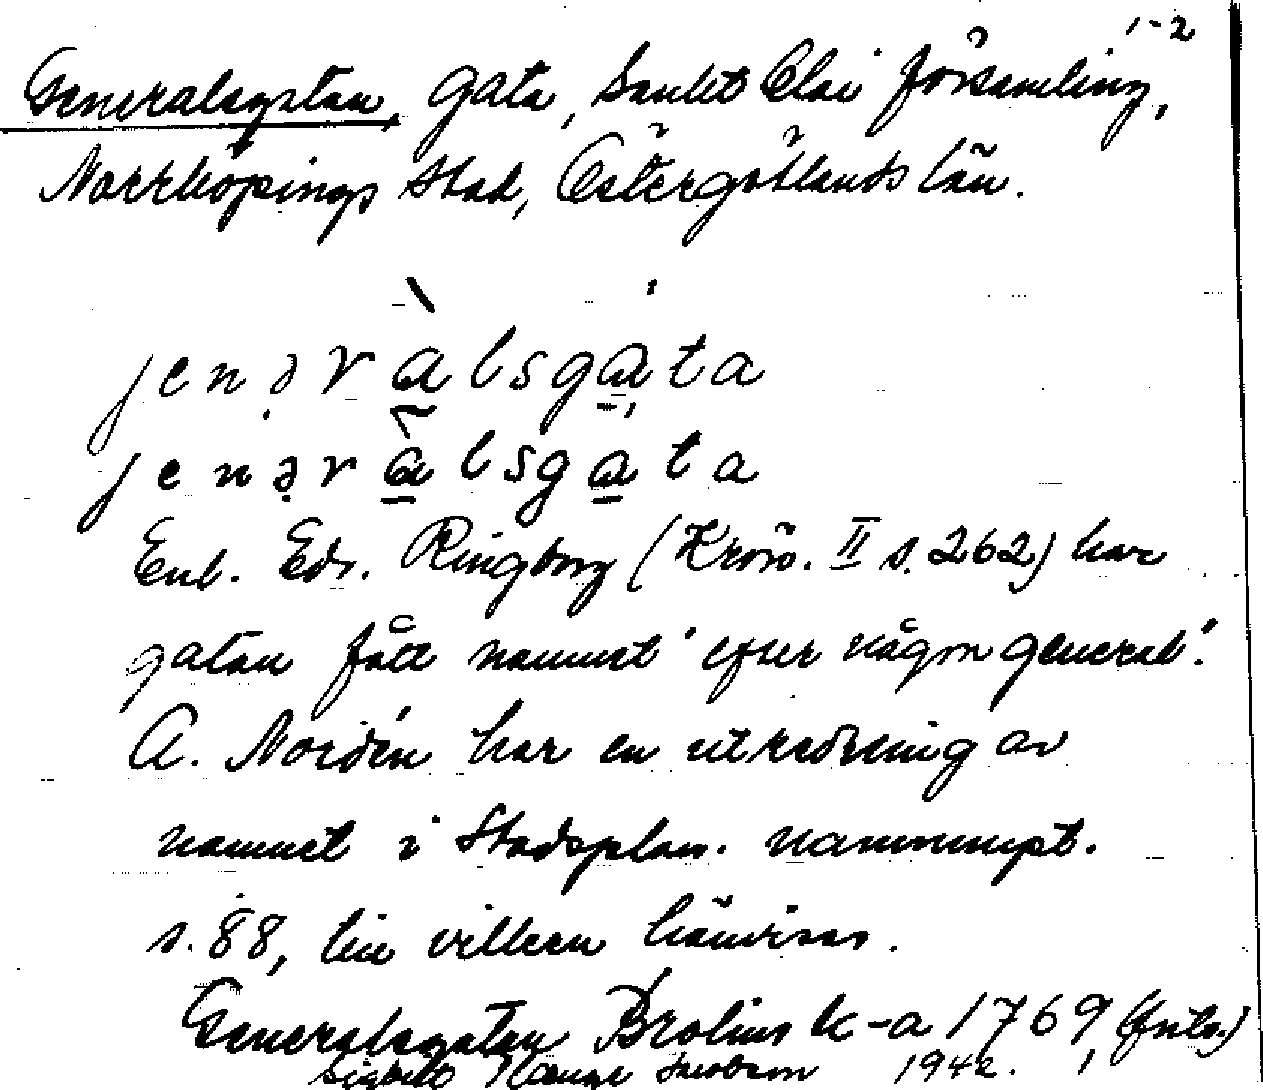 1-2
Generalsgatan, gata, Sankt Olai församling,
Norrköpings stad, Östergötlands län.
jenəràlsgáta
jenəràlsgata
Enl. Edv. Ringborg (Krön. II s. 262) har
gatan fått namnet "efter någon general".
A. Nordén har en utredning av
namnet i Stadsplan. namnuppt.
s. 88, till vilken hänvisas.
Generalsgatan Brolins k-a 1769 (fnla)
1942.